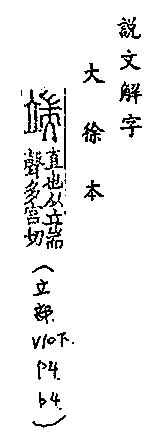 説文解字
大徐本
端 直也从立耑
聲多官切
(立部.
V10下.
P4.
b4.)